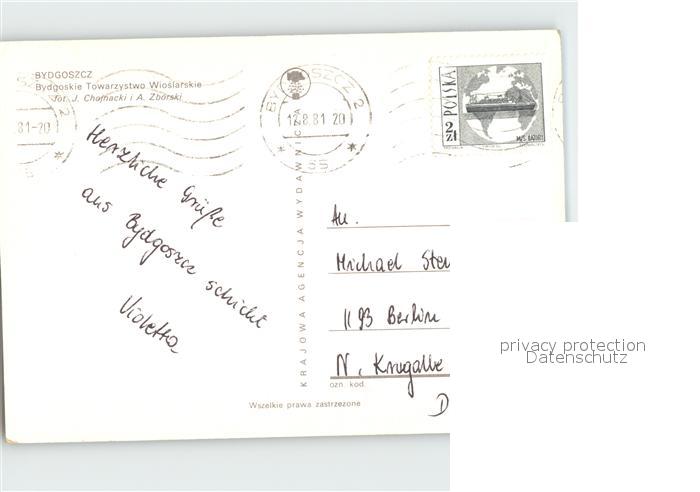 BYDGOSZCZ
Bydgoskie Towarzystwo Wioślarskie
fot. J. Chojnacki i A. Zborski
81-20
2
BYDGOSZCZ 2
12.8.81.20
* SS *
POLSKA
2 ZŁ
M/S BATORY
Herzliche Grüße
aus Bydgoszcz schickt
Violetta
KRAJOWA AGENCJA WYDAWNICZA
An.
Michael
1193 Berlin
ozn. kod.
D
Wszelkie prawa zastrzeżone
privacy protection
Datenschutz